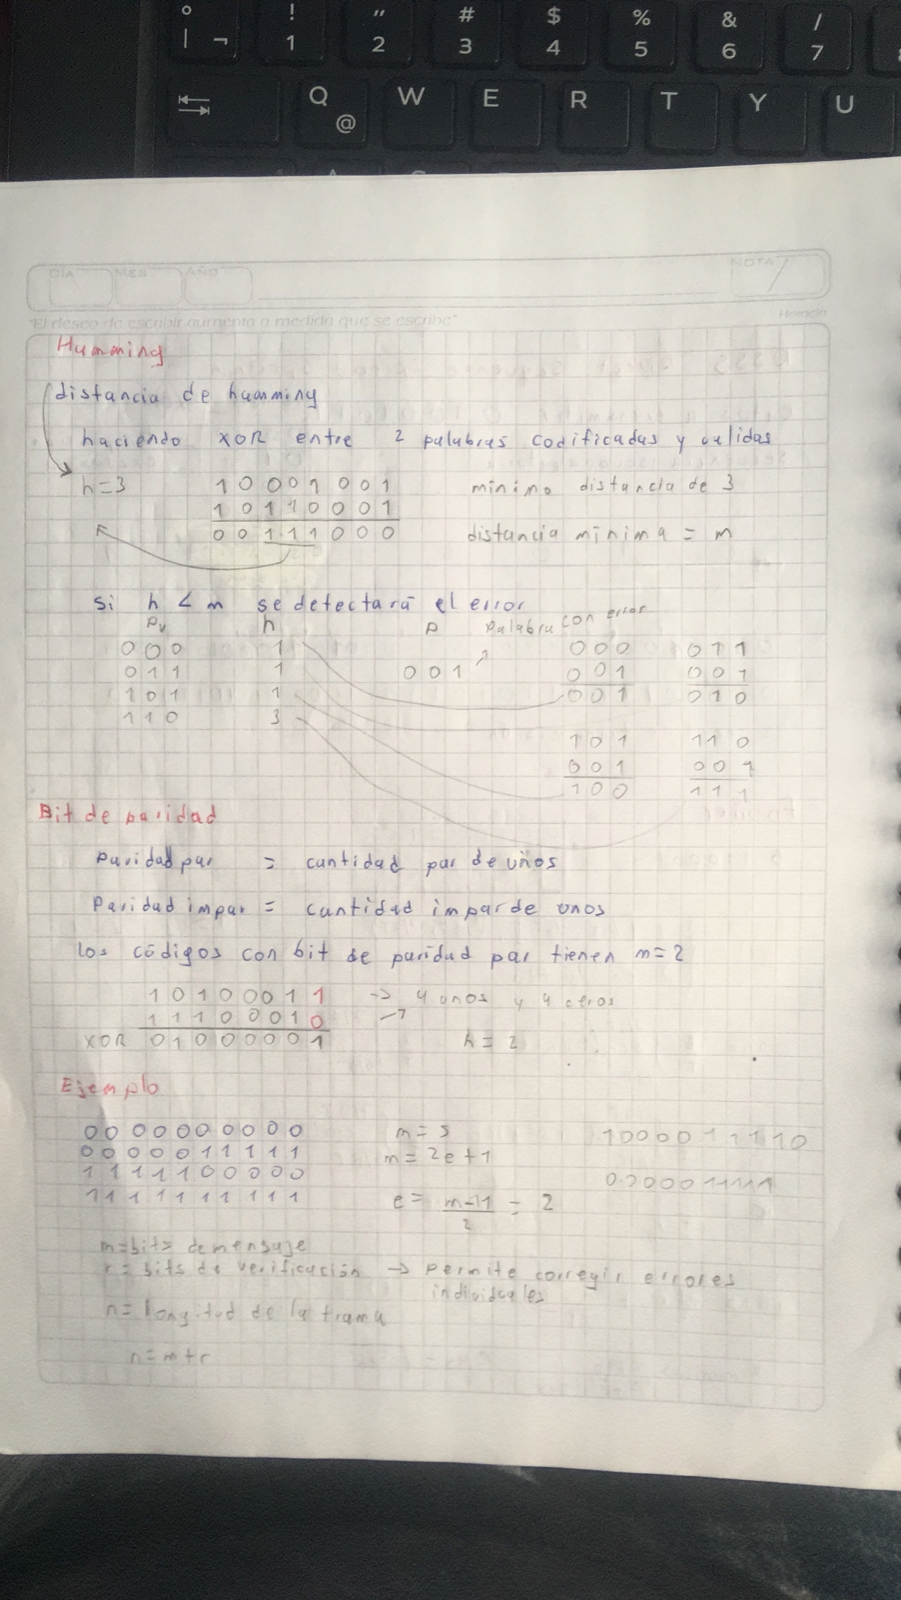 ° ! " # $ % & /
| ¬ 1 2 3 4 5 6 7
Q W E R T Y U
@
DÍA MES AÑO NOTA
"El deseo de escribir aumenta a medida que se escribe" Horacio
Humming
distancia de humming
haciendo XOR entre 2 palabras codificadas y validas
h=3 10001001 minimo distancia de 3
10110001
00111000 distancia minima = m
Si h < m se detectará el error
Pv h P palabra con error
000 1 000 011
011 1 001 001 001
101 1 001 010
110 3
101 110
001 001
100 111
Bit de paridad
Paridad par = cantidad par de uños
Paridad impar = cantidad impar de unos
Los códigos con bit de paridad par tienen m=2
10100011 -> 4 unos y 4 ceros
11100010 ->
XOR 01000001 h = 2
Ejemplo
0000000000 m = 5 1000011110
0000011111 m = 2e+1
1111100000
1111111111 e = m-1/2 = 2
m=bits de mensaje
r = bits de verificación -> permite corregir errores
individuales
n = longitud de la trama
n=m+r